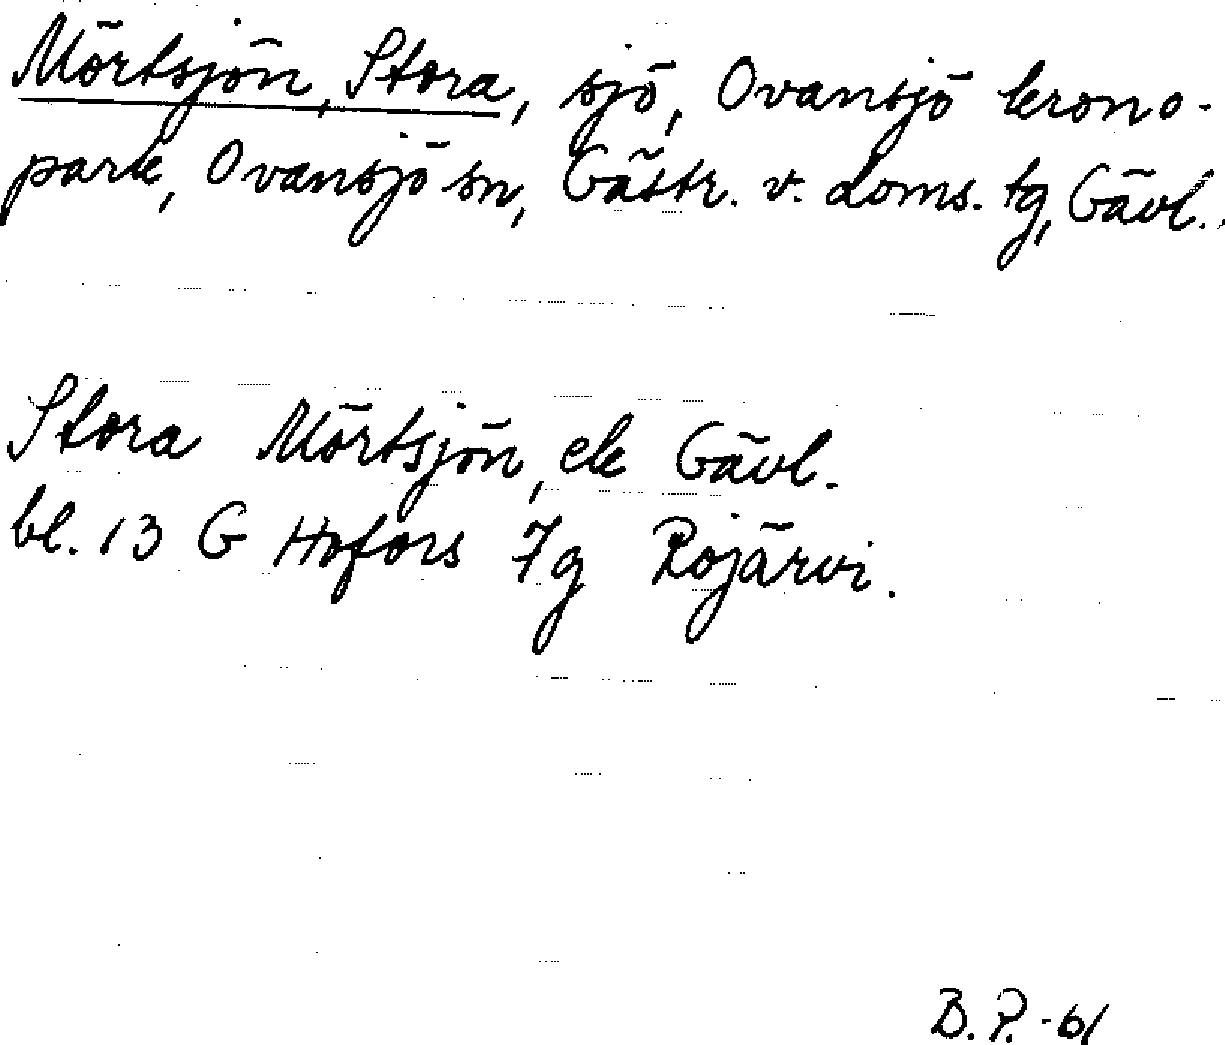 Mörtsjön, Stora, sjö, Ovansjö krono-
park, Ovansjö sn, Gästr. v. doms. tg, Gävl.
Stora Mörtsjön, ek Gävl.
bl. 13 G Hofors 7g Rojärvi.
B.P. -61